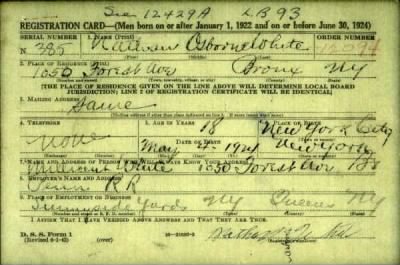 See 12429A LB 93
REGISTRATION CARD—(Men born on or after January 1, 1922 and on or before June 30, 1924)
SERIAL NUMBER 1. NAME (Print) ORDER NUMBER
385 Nathan Osborne White 12394
2. PLACE OF RESIDENCE (Print)
1050 Forest Ave Bronx NY
[THE PLACE OF RESIDENCE GIVEN ON THE LINE ABOVE WILL DETERMINE LOCAL BOARD
JURISDICTION; LINE 2 OF REGISTRATION CERTIFICATE WILL BE IDENTICAL]
3. MAILING ADDRESS
Same
4. TELEPHONE 5. AGE IN YEARS 6. PLACE OF BIRTH
None 18 New York City
DATE OF BIRTH
May 4 1924 New York
7. NAME AND ADDRESS OF PERSON WHO WILL ALWAYS KNOW YOUR ADDRESS
Millicent White 1050 Forest Ave Bx
8. EMPLOYER'S NAME AND ADDRESS
Penn RR
9. PLACE OF EMPLOYMENT OR BUSINESS
Sunnyside Yards NY Queens NY
I AFFIRM THAT I HAVE VERIFIED ABOVE ANSWERS AND THAT THEY ARE TRUE.
D. S. S. Form 1